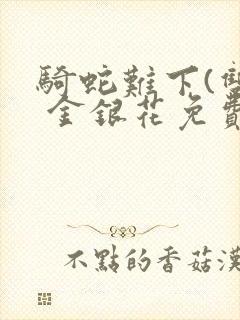 騎蛇難下(雙
金銀花免費
不點的香菇漢